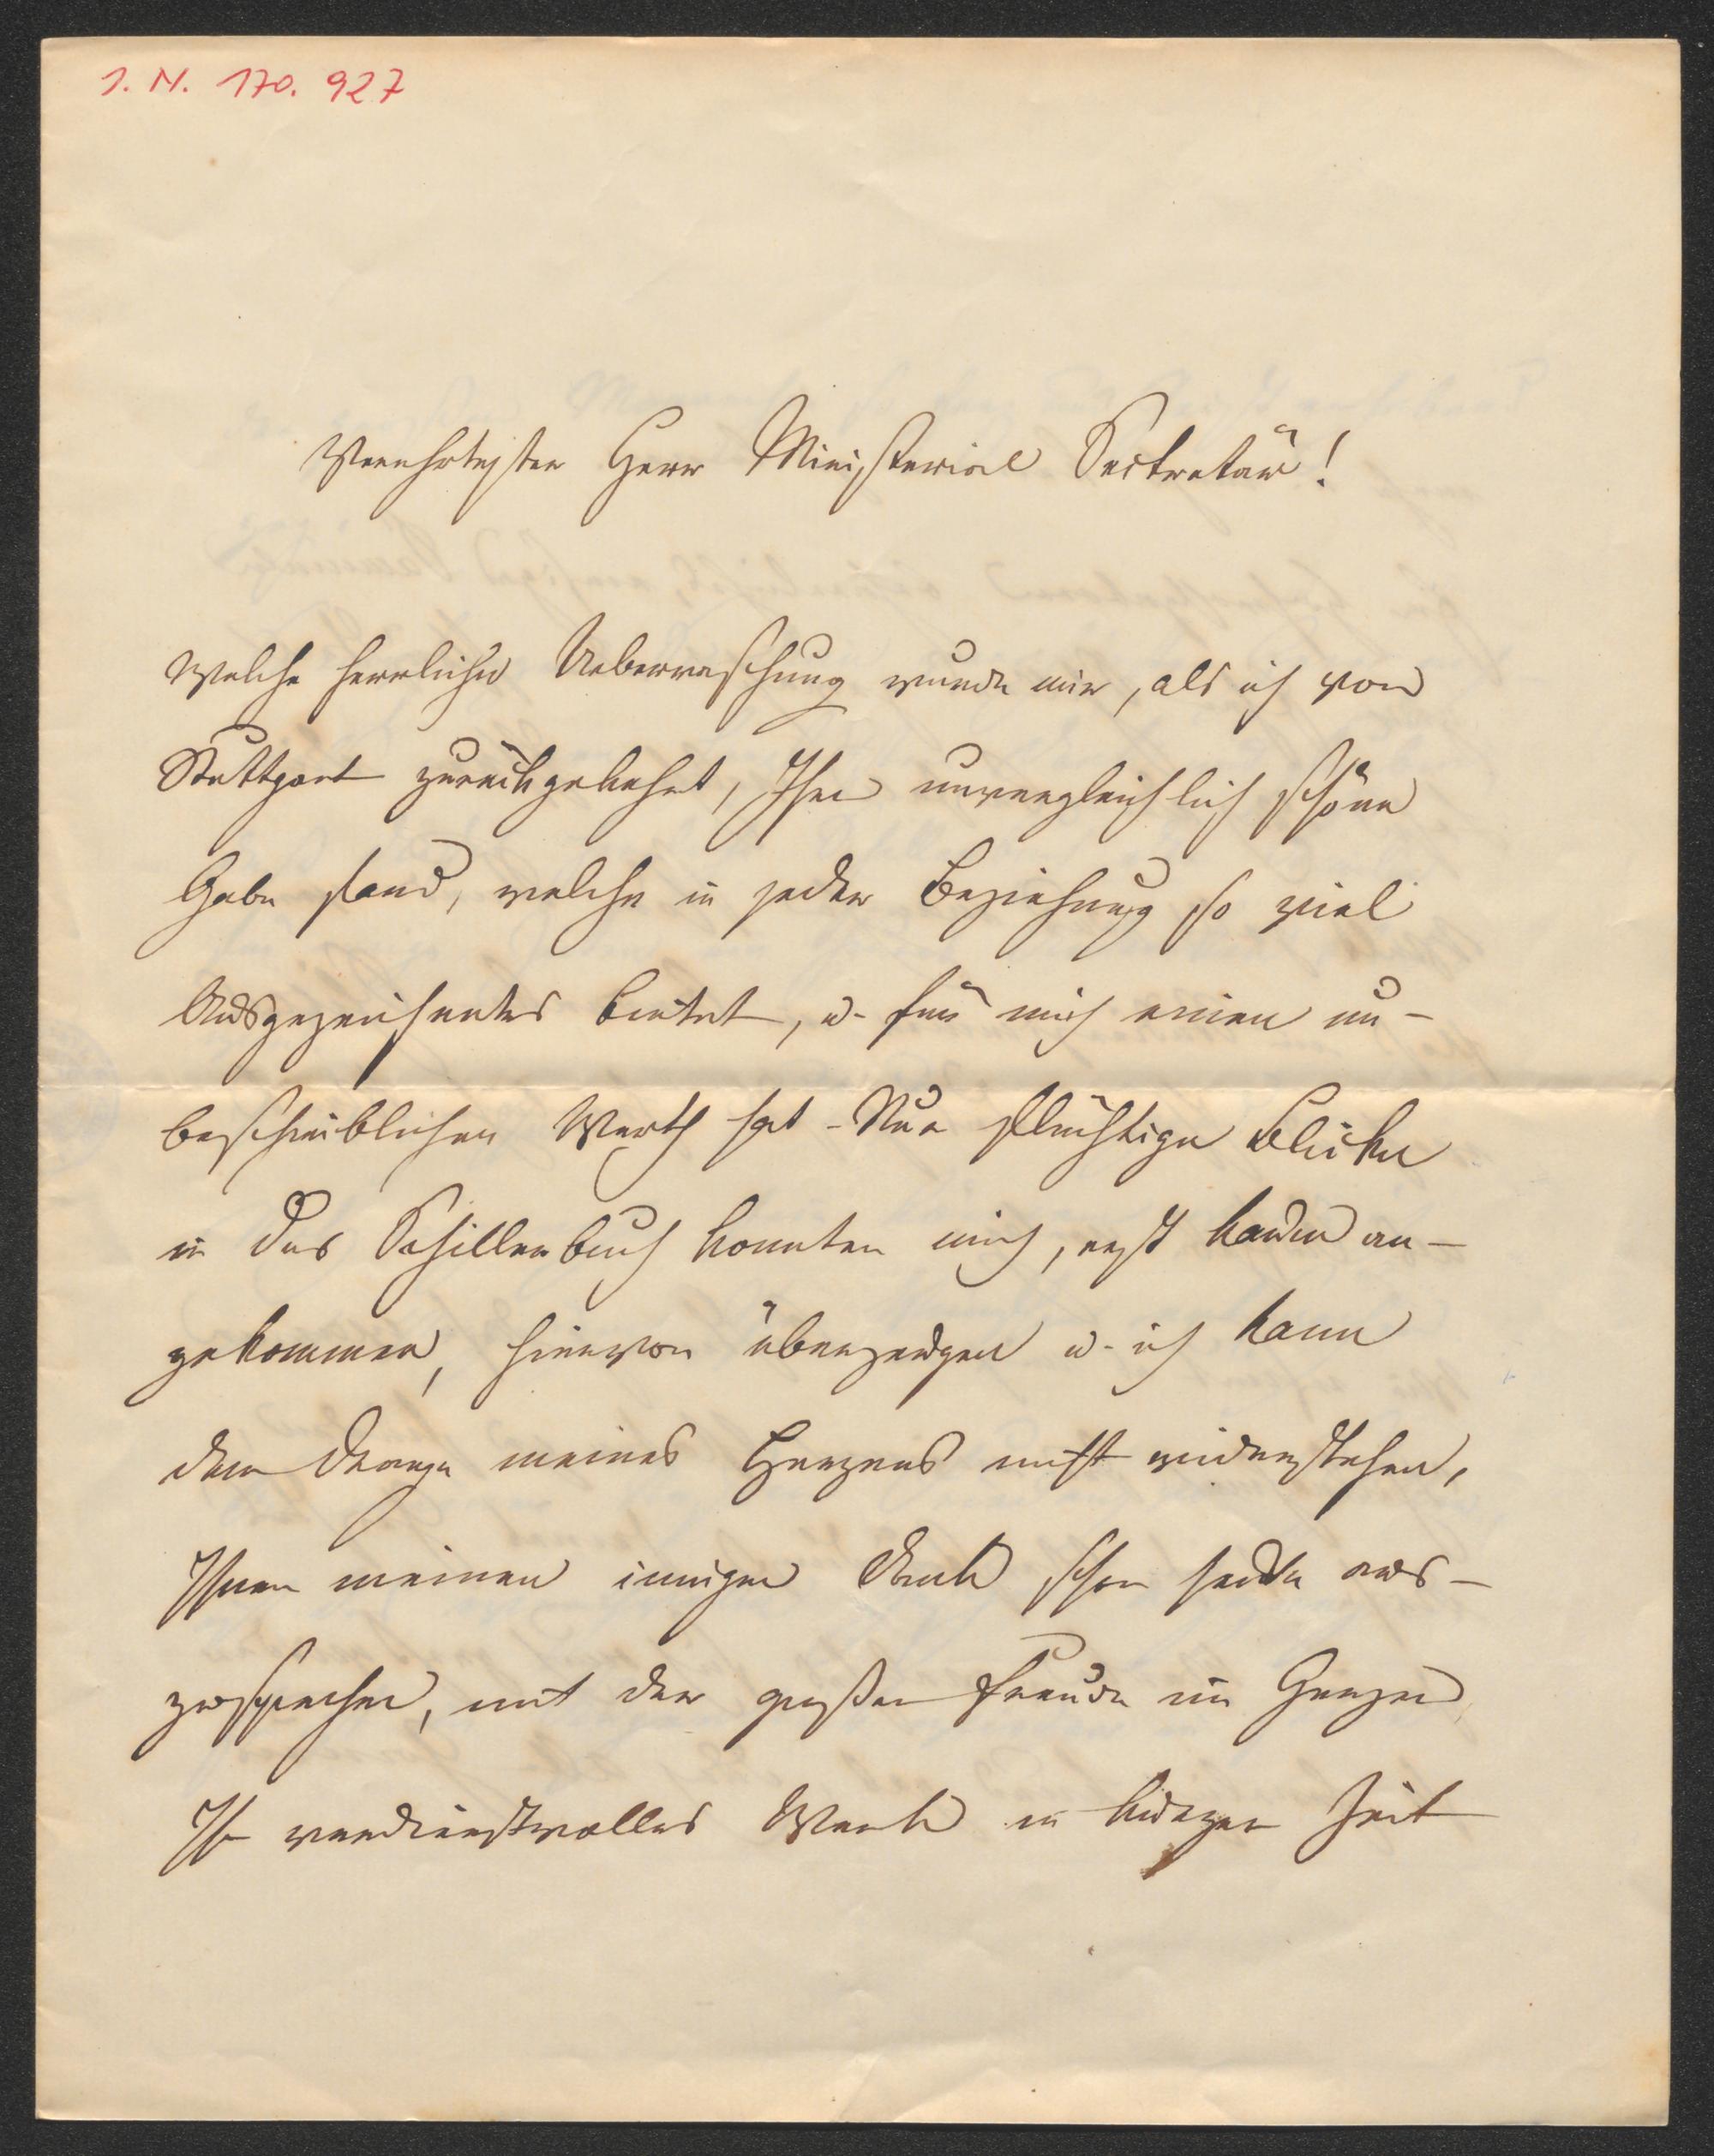 I. N. 170.927
Verehrtester Herr Ministerial Secretär!
Welche herrliche Ueberraschung wurde mir, als ich von
Stuttgart zurückgekehrt, Ihre unvergleichlich schöne
Gabe fand, welche in jeder Beziehung so viel
Ausgezeichnetes bietet, u. für mich einen un-
beschreiblichen Werth hat - Nur flüchtige Blicke
in das Schillerbuch konnten mich, erst kaum an-
gekommen, hievon überzeugen u. ich kann
dem Drange meines Herzens nicht widerstehen,
Ihnen meinen innigen Dank schon heute aus-
zusprechen, mit der großen Freude im Herzen
Ihr verdienstvolles Werk in kurzer Zeit